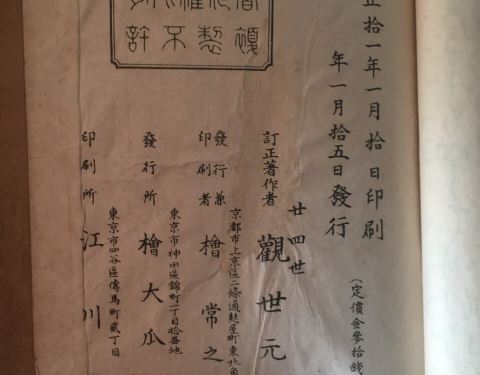 正拾一年一月拾日印刷
年一月拾五日發行
(定價金參拾錢
廿四世
訂正著作者 觀世元
京都市上京區二條通麩屋町東北角
發行兼印刷者 檜常之
東京市神田區錦町一丁目拾番地
發行所 檜大瓜
東京市四谷區傳馬町貳丁目
印刷所 江川